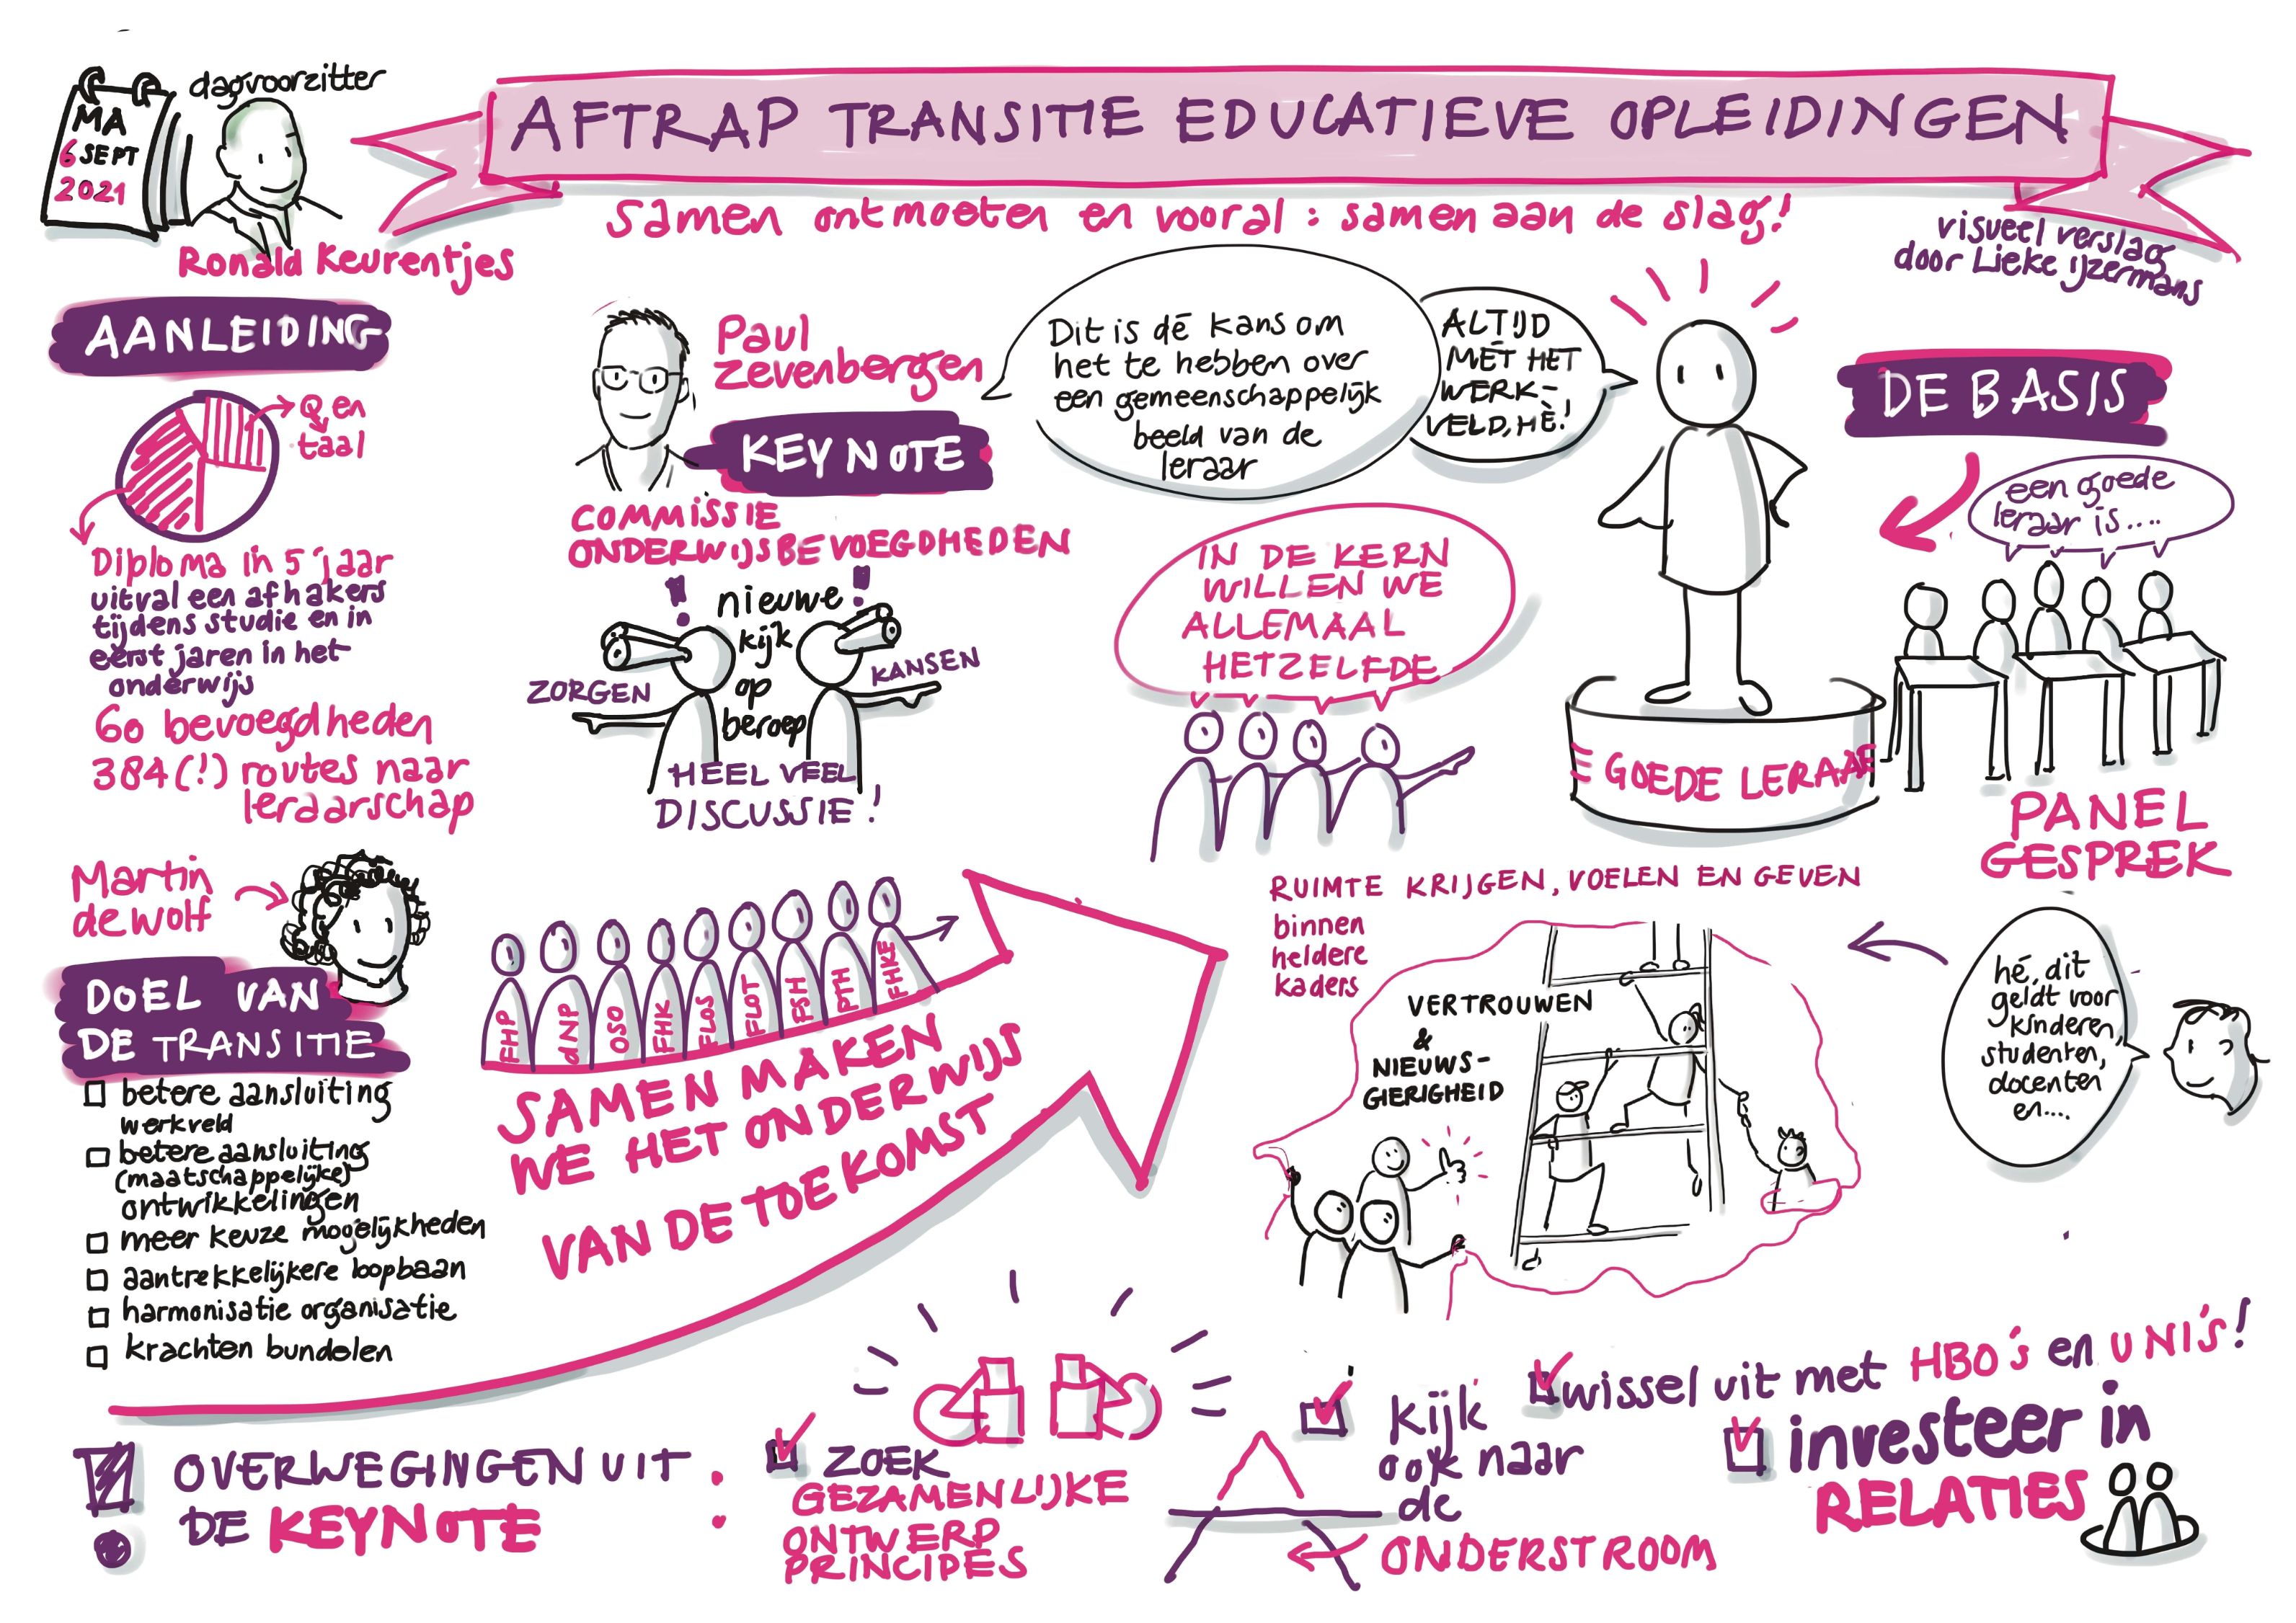 MA
6 SEPT
2021
dagvoorzitter
Ronald Keurentjes
AFTRAP TRANSITIE EDUCATIEVE OPLEIDINGEN
samen ontmoeten en vooral : samen aan de slag!
visueel verslag
door Lieke ijzermans
AANLEIDING
Q en
taal
Diploma in 5 jaar
uitval een afhakers
tijdens studie en in
eerst jaren in het
onderwijs
60 bevoegdheden
384(!) routes naar
leraarschap
Paul
Zevenbergen
KEYNOTE
COMMISSIE
ONDERWIJSBEVOEGDHEDEN
! !
nieuwe
kijk
op
beroep
ZORGEN
KANSEN
HEEL VEEL
DISCUSSIE!
Dit is dé kans om
het te hebben over
een gemeenschappelijk
beeld van de
leraar
ALTIJD
MÉT HET
WERK-
VELD, HÈ!
IN DE KERN
WILLEN WE
ALLEMAAL
HETZELFDE
GOEDE LERAAR
DE BASIS
een goede
leraar is....
PANEL
GESPREK
Martin
de wolf
DOEL VAN
DE TRANSITIE
betere aansluiting
werkveld
betere aansluiting
(maatschappelijke)
ontwikkelingen
meer keuze mogelijkheden
aantrekkelijkere loopbaan
harmonisatie organisatie
krachten bundelen
FHP
dNP
OSO
FHK
FLOS
FLOT
FSH
PTH
FHKE
SAMEN MAKEN
WE HET ONDERWIJS
VAN DE TOEKOMST
RUIMTE KRIJGEN, VOELEN EN GEVEN
binnen
heldere
kaders
VERTROUWEN
&
NIEUWS-
GIERIGHEID
hé, dit
geldt voor
kinderen,
studenten,
docenten
en....
! OVERWEGINGEN UIT
DE KEYNOTE :
ZOEK
GEZAMENLIJKE
ONTWERP
PRINCIPES
Kijk
ook naar
de
ONDERSTROOM
wissel uit met HBO's en UNI'S!
investeer in
RELATIES